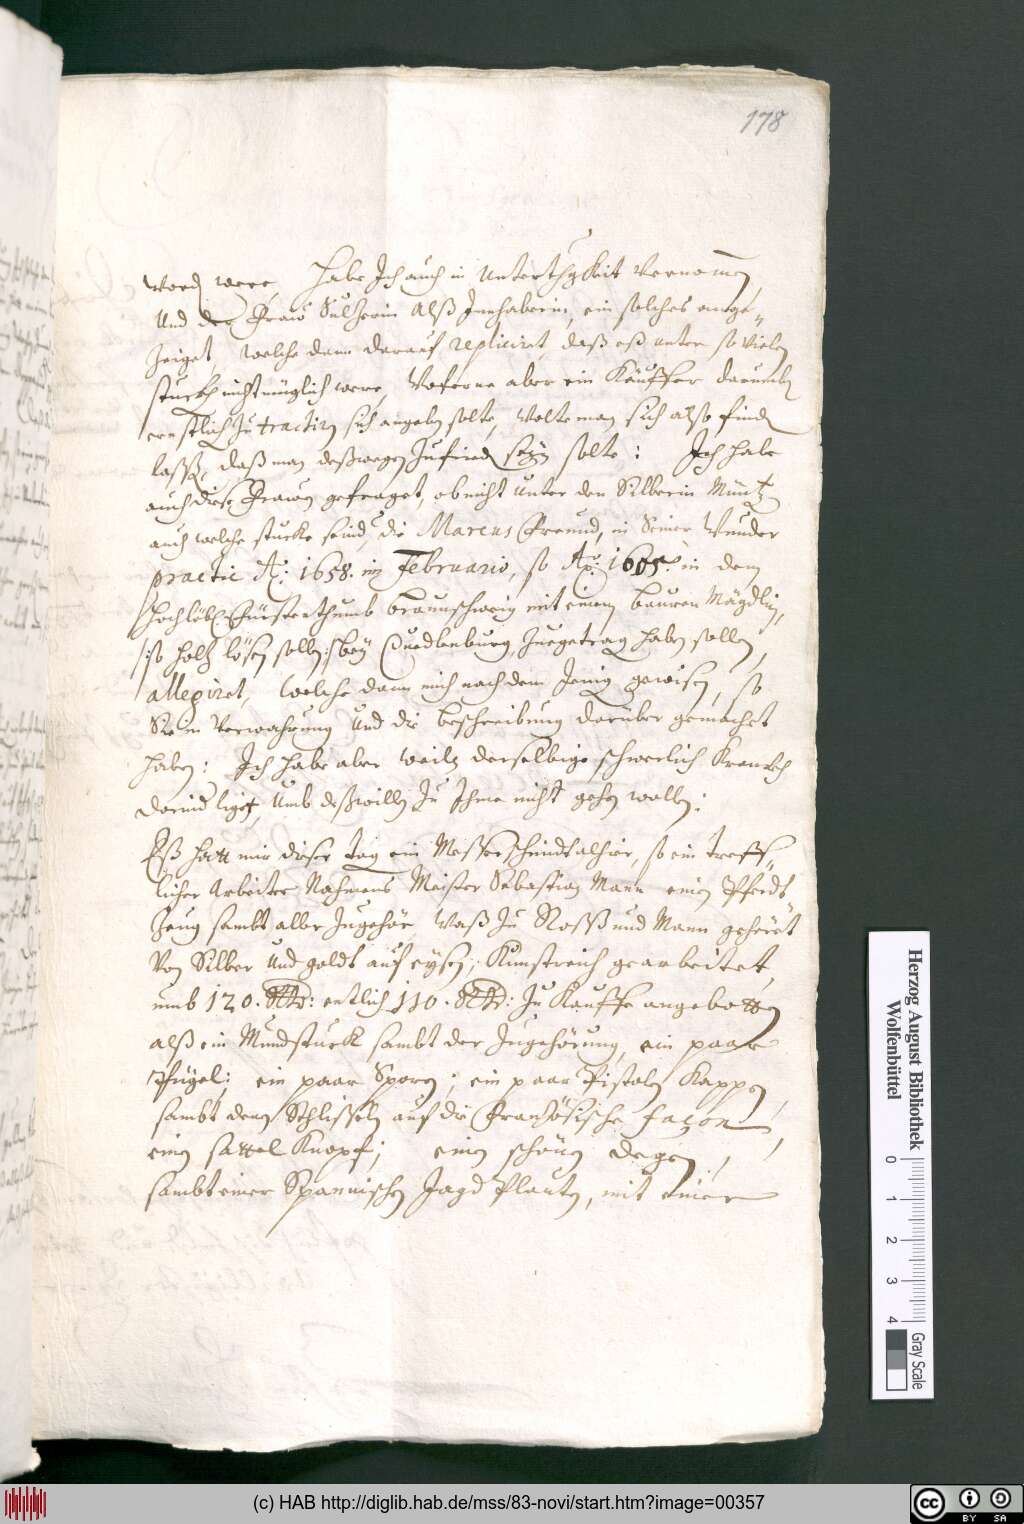 178
word were, Habe Ich auch in Unterthgkeit vernomen,
Und der Fraw Sulherin Alß Innhaberin, ein solches ange-
Zeiget, welche dann darauf repliciret, daß eß unter so vielen
stuckh nicht müglich were, Woferne aber ein Käuffer darumb
ernstlich Zu tractirn sich angeben solte, wolte man sich also finden
lassen, daß man deßwegen Zufrieden seyn solte: Ich habe
auch diese Frawen gefraget, ob nicht unter den Silberin Müntz
auch welche stucke seind, die Marcus Freund, in Seiner Wunder
practic Ao: 1658. im Februario, so Ao: 1605. in dem
Hochlöbl: Fürstenthumb Braunschweig mit einem bauren Mägdlin,
/:so holtz lösen sollen:/ bey Quedlenburg Zuegetragen haben sollen,
allegiret, welche dann mich nach dem Jenig gewisen, so
Sie in Verwahrung und die beschreibung darüber gemachet
haben: Ich habe aber weiln derselbige schwerlich Kranckh
darnid ligt, Umb deßwillen Zu Ihme nicht gehen wollen:
Eß hatt mir dieser tag ein Messerschmidt alhier, so ein treff-
licher Arbeiter Nahmens Meister Sebastian Mann einen Pferdt
Zeug sambt aller Zugehör, waß Zu Rosß und Mann gehöret
Von Silber Und goldt auf eysen, Kunstreich gearbeitet,
umb 120. Rthr: entlich 110. Rthr: Zu Kauffe angebotten
alß ein Mundstuck sambt der Zugehörung, ein paar
Pfügel: ein paar Sporen; ein paar Pistolen Kappen,
sambt denen Schlisseln auf die Französische façon,
einen sattel Knopf; einen schönen degen,
sambt einer Spannischen Jagd Plauten, mit einer
Herzog August Bibliothek
Wolfenbüttel
0 1 2 3 4
Gray Scale
(c) HAB http://diglib.hab.de/mss/83-novi/start.htm?image=00357
cc
BY SA